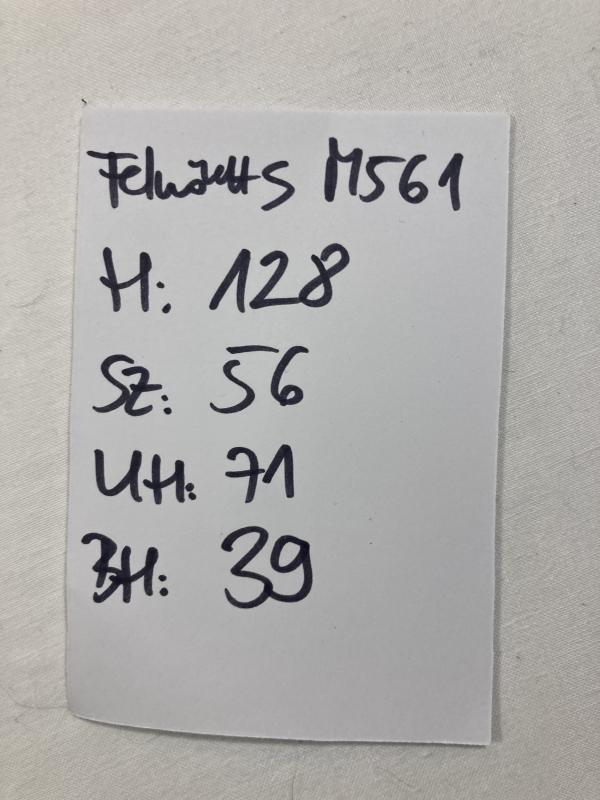 M561
H: 128
SZ: 56
UH: 71
BH: 39